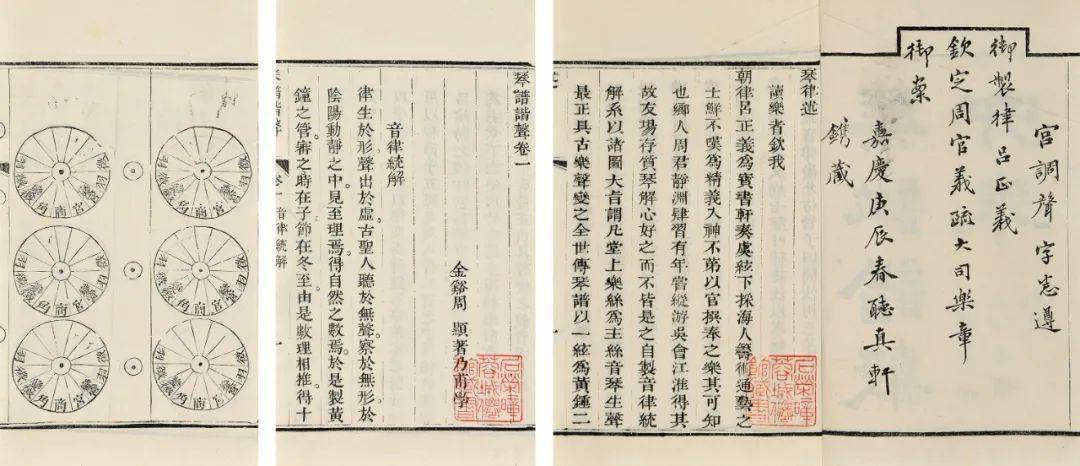 宮調聲字悉遵
御製律呂正義
欽定周官義疏大司樂章
御案
嘉慶庚辰春聽真軒
鐫藏
琴律述
讀樂者欽我
朝律呂正義為寶書軒奏虞絃下採海人醫術通藝之
士鮮不嘆為精義入神不第以官撰奉之樂其可知
也鄉人周君靜淵肄習有年嘗縱游吳會江淮得其
故友場存質琴解心好之而不皆是之自製音律統
解系以諸圖大旨謂凡堂上樂絲為主絲音琴生聲
最正具古樂聲變之全世傳琴譜以一絃為黃鍾二
石榮暲
蓉城僊
館藏書
琴譜諧聲卷一
金谿周 顯著乃甫學
音律統解
律生於形聲出於虛古聖人聽於無聲察於無形於
陰陽動靜之中見至理焉得自然之數焉於是製黃
鐘之管審之時在子節在冬至由是數理相推得十
一
石榮暲
蓉城僊
館藏書
琴譜諧聲 卷一 音律統解 一
宮商角
宮商角
宮商角
宮商角
宮商角
宮商角